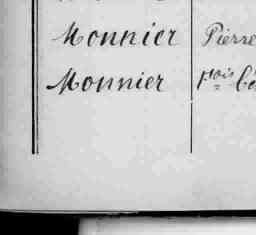 Monnier Pierre
Monnier fçois